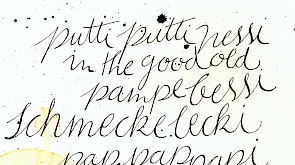 putti putti nessi
in the good old
pampebessi
Schmecke.lecki
pap.pap.papi